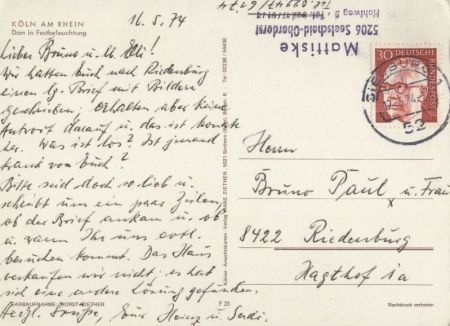 KÖLN AM RHEIN
Dom in Festbeleuchtung
16.5.74
Lieber Bruno und lb. Elli!
Wir hatten Euch nach Riedenburg
einen lg. Brief mit Bildern
geschrieben; erhalten aber keine
Antwort darauf u. das ist Monate
her. Was ist los? Ist jemand
krank von Euch?
Bitte seid doch so lieb u.
schreibt uns ein paar Zeilen,
ob der Brief ankam u. ob
u. wann Ihr uns evtl.
besuchen kommt. Das Haus
verkaufen wir nicht; es hat
sich eine andere Lösung gefunden.
Herzl. Grüße, Eure Heinz u.
FARBAUFNAHME: HORST ZIETHEN
F 25
Mattiske
5206 Seelscheid-Oberdorst
Hohlweg 8
30
DEUTSCHE BUNDESPOST
52
Herrn
Bruno Paul u. Frau
8422 Riedenburg
Hagthof 1a
Nachdruck verboten